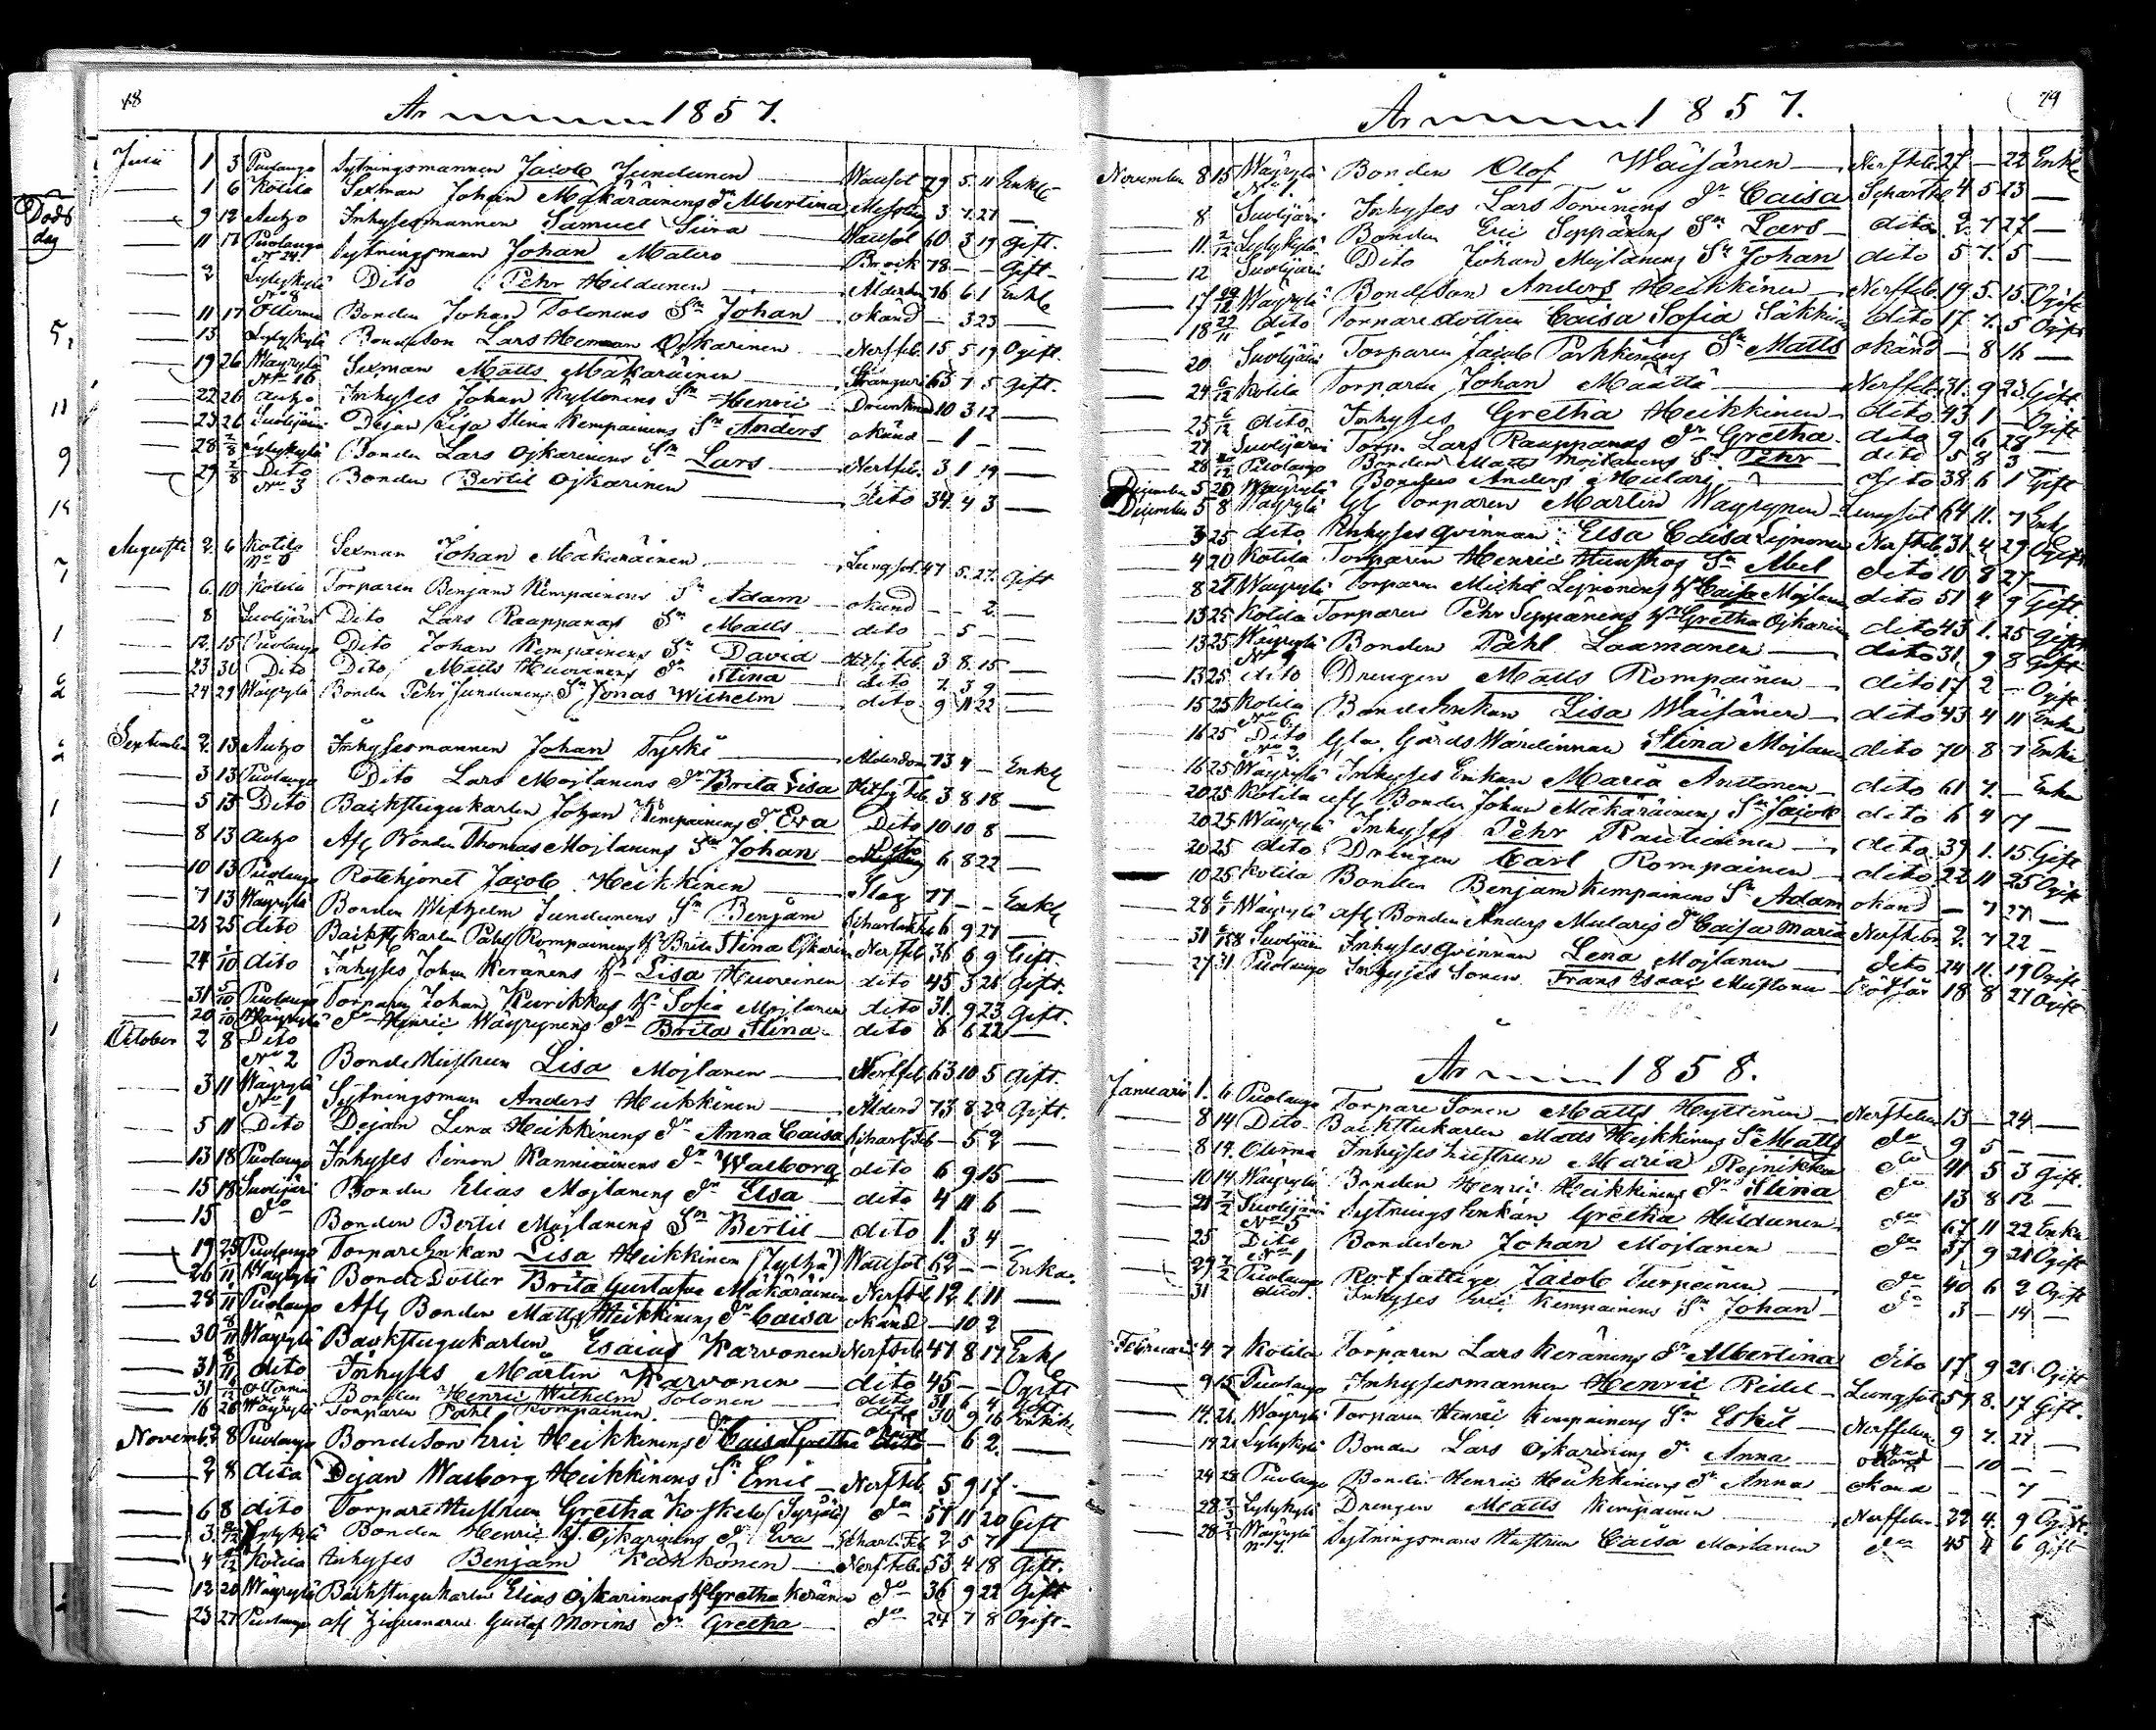 78
År 1857.
Julii 1 3 Puolango Sytningsmannen Jacob Jundunen Wattsot 79 5 11 Enkl
1 6 Kotila Sexman Johan Mäkäräinens dr Albertina Messling 3 7 27 —
9 12 Autjo Inhysesmannen Samuel Siira Wattsot 60 3 19 Gift.
11 12 Puolango Sytningsman Johan Matero Brock 78 — — Gift
N° 24
2 Lylykylä Dito Pehr Heildunen Ålderdom 76 6 1 Enkl
N° 8
11 17 Otterma Bonden Johan Tolonens Sn Johan okänd — 3 23 —
13 Lylykylä Bondeson Lars Herman Ojkarinen Nerffeb. 15 5 19 Ogift.
19 26 Wäyrylä Sexman Matts Mäkäräinen Stranguri 63 7 5 Gift.
N° 16
22 26 Autjo Inhyses Johan Kyllönens Sn Henric Drunknad 10 3 12 —
23 26 Suolijärvi Dejan Lisa Stina Kempainens Sn Anders okänd — 1 —
28 2/8 Lylykylä Bonden Lars Ojkarinens Sn Lars Nerffeb. 3 1 19 —
29 2/8 Dito Bonden Bertil Ojkarinen dito 34 4 3 —
N° 3
Augusti 2 6 Kotila Sexman Johan Mäkäräinen Lungsot 47 5 27 Gift
6 10 Kotila Torparen Benjam Kempainens Sn Adam okänd — — 2 —
8 Suolijärvi Dito Lars Raappanas Sn Matts dito — 5 —
12 15 Puolango Dito Johan Kempainens Sn David Hitsig Feb. 3 8 15 —
23 30 Dito Dito Matts Huovinens dr Stina dito 7 3 9 —
24 29 Wäyrylä Bonden Pehr Jundunens Sn Jonas Wilhelm dito 9 11 22 —
September 2 13 Autjo Inhysesmannen Johan Tyski Ålderdom 73 4 — Enkl
3 13 Puolango Dito Lars Mojlanens dr Brita Lisa Hitsig Feb. 3 8 18 —
5 13 Dito Backstugukarlen Johan Kempainens dr Eva Dito 10 10 8 —
8 13 Autjo Afl Bonden Thomas Mojlanens Sn Johan 6 8 22 —
10 13 Puolango Rotehjonet Jacob Heikkinen Slag 77 — — Enkl
7 13 Wäyrylä Bonden Wilhelm Jundunens Sn Benjam Scharlakfeb 6 9 27 —
21 25 dito Backst karlen Påhl Rompainens h Brita Stina Ojkarinen Nerffeb 36 6 9 Gift.
24 1/10 dito Inhyses Johan Keränens h Lisa Huovinen dito 45 3 21 Gift.
31 5/10 Puolango Torparen Johan Kurikkas h Sofia Mojlanen dito 31 9 23 Gift.
20 /10 Wäyrylä do Henric Wäyrynens dr Brita Stina dito 6 6 22 —
October 2 8 Dito
N° 2 Bonde Hustrun Lisa Mojlanen Nerffeb 63 10 5 Gift.
3 11 Wäyrylä Sytningsman Anders Heikkinen Ålderd 73 8 29 Gift.
N° 1
5 11 Dito Dejan Lena Heikkinens dr Anna Caisa Scharl Feb — 5 2 —
13 18 Puolango Inhyses Simon Kanniainens dr Walborg dito 6 9 15 —
15 18 Suolijärvi Bonden Elias Mojlanens dr Elsa dito 4 11 6 —
15 do Bonden Bertil Mojlanens Sn Bertil dito 1 3 4 —
19 25 Puolango TorpareEnkan Lisa Heikkinen Wattsot 62 — — Enka.
26 /11 Wäyrylä BondeDotter Brita Gustafva Mäkäräinen Nerffeb 12 1 11 —
28 /11 Puolango Afl Bonden Matts Heikkinens dr Caisa okänd — 10 2
30 8/11 Wäyrylä Backstugukarlen Esaias Karvonen Nerffeb 47 8 17 Enkl
31 8/11 dito Inhyses Martin Karvonen dito 45 — — Ogift
31 /12 Otterma Bonden Henric Wilhelm Tolonen dito 31 6 4 Gift
16 26 Wäyrylä Torparen Påhl Rompainen dito 30 9 16 Enkl.
Novemb. 2 8 Puolango Bondeson Eric Heikkinens dr Caisa Gretha dito — 6 2 —
2 8 dito Dejan Walborg Heikkinens Sn Emil Nerffeb. 5 9 17 —
6 8 dito TorpareHustrun Gretha Koskelo do 57 11 20 Gift
3 /12 Lylykylä Bonden Henric J. Ojkarinens dr Eva Scharl. Feb 2 5 7
4 /12 Kotila Inhyses Benjam Karkkönen Nerffeb. 53 4 18 Gift.
12 20 Wäyrylä Backstugukarlen Elias Ojkarinens h Gretha Keränen do 36 9 22 Gift
23 27 Puolango afl Zigenaren Gustaf Morins dr Gretha do 24 7 8 Ogift
Döds
dag
79
År 1857.
November 8 15 Wäyrylä Bonden Olof Wäisänen Nerffeb. 27 — 22 Enkl
N° 1.
8 Suolijärvi Inhyses Lars Torvinens dr Caisa Scharlfeb 4 5 23 —
11 2/12 Lylykylä Bonden Eric Seppänens Sn Lars dito 2 7 27 —
12 Suolijärvi Dito Johan Mojlanens Sn Johan dito 5 7 5 —
17 29/12 Wäyrylä Bondeson Anders Heikkinen Nerffeb. 19 5 15 Ogift
18 22/11 dito Torparedottren Caisa Sofia Säkkinen dito 17 7 5 Ogift
20 Suolijärvi Torparen Jacob Parkkinens Sn Matts okänd — 8 16 —
24 6/12 Kotila Torparen Johan Määttä Nerffeb. 31 9 23 Gift
25 6/12 dito Inhyses Gretha Heikkinen dito 43 1 — Ogift
27 Suolijärvi Torp. Lars Raappanas dr Gretha dito 9 6 28 —
28 /12 Puolango Bonden Matts Mojlanens Sn Pehr dito 5 8 3
December 5 20 Wäyrylä Bondens Anders Mulari dito 38 6 1 Gift
December 5 8 Wäyrylä Gl Torparen Martin Wäyrynen Lungsot 64 11 7 Enkl
3 25 dito Inhyses qvinnan Elsa Caisa Leinonen Nerffeb. 31 4 29 Ogift
4 20 Kotila Torparen Henric Huuskos Sn Abel dito 10 8 27 —
8 27 Wäyrylä Torparen Michel Leinonens h Caisa Mojlanen dito 51 4 9 Gift.
13 25 Kotila Torparen Pehr Seppänens h Gretha Ojkarinen dito 43 1 25 Gift
13 25 Wäyrylä Bonden Påhl Laamanen dito 31 9 8 Gift
13 25 dito Drengen Matts Rompainen dito 17 2 — Ogift
15 25 Kotila BondeEnkan Lisa Wäisänen dito 43 4 11 Enka
N° 6
16 25 Dito Gla Gårds Wärdinnan Stina Mojlanen dito 70 8 7 Enka
N° 2
16 25 Wäyrylä Inhyses Enkan Maria Anttonen dito 61 7 — Enka
20 25 Kotila afl Bonden Johan Mäkäräinens Sn Jacob dito 6 4 7 —
20 25 Wäyrylä Inhyses Pehr Rautiainen dito 39 1 15 Gift
20 25 dito Drengen Carl Rompainen dito 22 11 25 Ogift
10 25 Kotila Bonden Benjam Kempainens Sn Adam okänd — 7 27 —
28 6/1 Wäyrylä afl Bonden Anders Mularis dr Caisa Maria Nerffeb 2 7 22 —
31 6/1 58 Suolijärvi Inhysesqvinnan Lena Mojlanen dito 24 11 19 Ogift
27 31 Puolango Inhyses Sonen Frans Isaac Mustonen 18 8 27 Ogift
År 1858.
Januarii 1 6 Puolango TorpareSonen Matts Hyttinen Nerffeber 13 — 24 —
8 14 Dito Backstukarlen Matts Heikkinens Sn Matts do 9 5 — —
8 14 Otterma Inhyseshustrun Maria Rejnikka do 41 5 3 Gift.
10 14 Wäyrylä Bonden Henric Heikkinens dr Stina do 13 8 12 —
21 7/2 Suolijärvi SytningsEnkan Gretha Hildunen do 67 11 22 Enka
N° 5
25 Dito Bondeson Johan Mojlanen do 37 9 28 Ogift
N° 1
29 7/2 Puolango Rotfattige Jacob Turpeinen do 40 6 2 Ogift
31 dito Inhyses Eric Kempainens Sn Johan do 3 — 14 —
Februari 4 7 Kotila Torparen Lars Keränens dr Albertina dito 17 9 21 Ogift
9 15 Puolango Inhysesmannen Henric Ridel Lungsot 57 8 17 Gift.
14 21 Wäyrylä Torparen Henric Kempainens Sn Eskil Nerffeber 9 7 27 —
19 21 Lylykylä Bonden Lars Ojkarinens dr Anna okänd — 10 — —
24 28 Puolango Bonden Henric Heikkinens dr Anna okänd — — 7 —
28 7/3 Lylykylä Drengen Matts Kempainen Nerffeber 22 4 9 Ogift.
28 7/3 Wäyrylä Sytningsmans Hustrun Caisa Mojlanen do 45 4 6 Gift